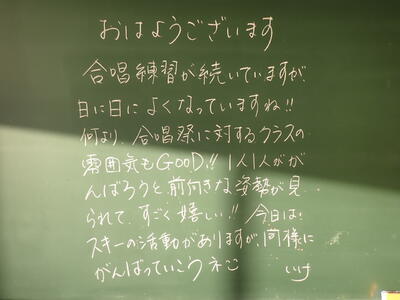 おはようございます
合唱練習が続いていますが、
日に日によくなっていますね!!
何より、合唱祭に対するクラスの
雰囲気もGOOD!! 1人1人がが
んばろうと前向きな姿勢が見
られて、すごく嬉しい!! 今日は、
スキーの活動がありますが、同様に
がんばっていこうネ